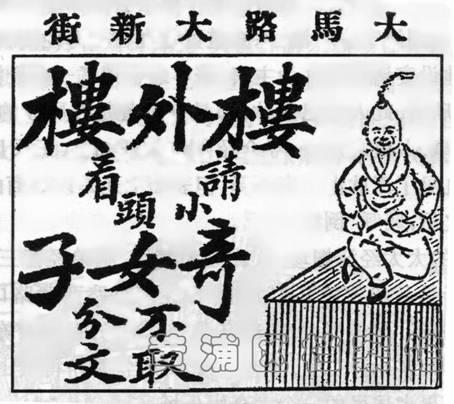 大馬路大新街
樓外樓
請看
小頭
奇女子
不取
分文
黄浦区